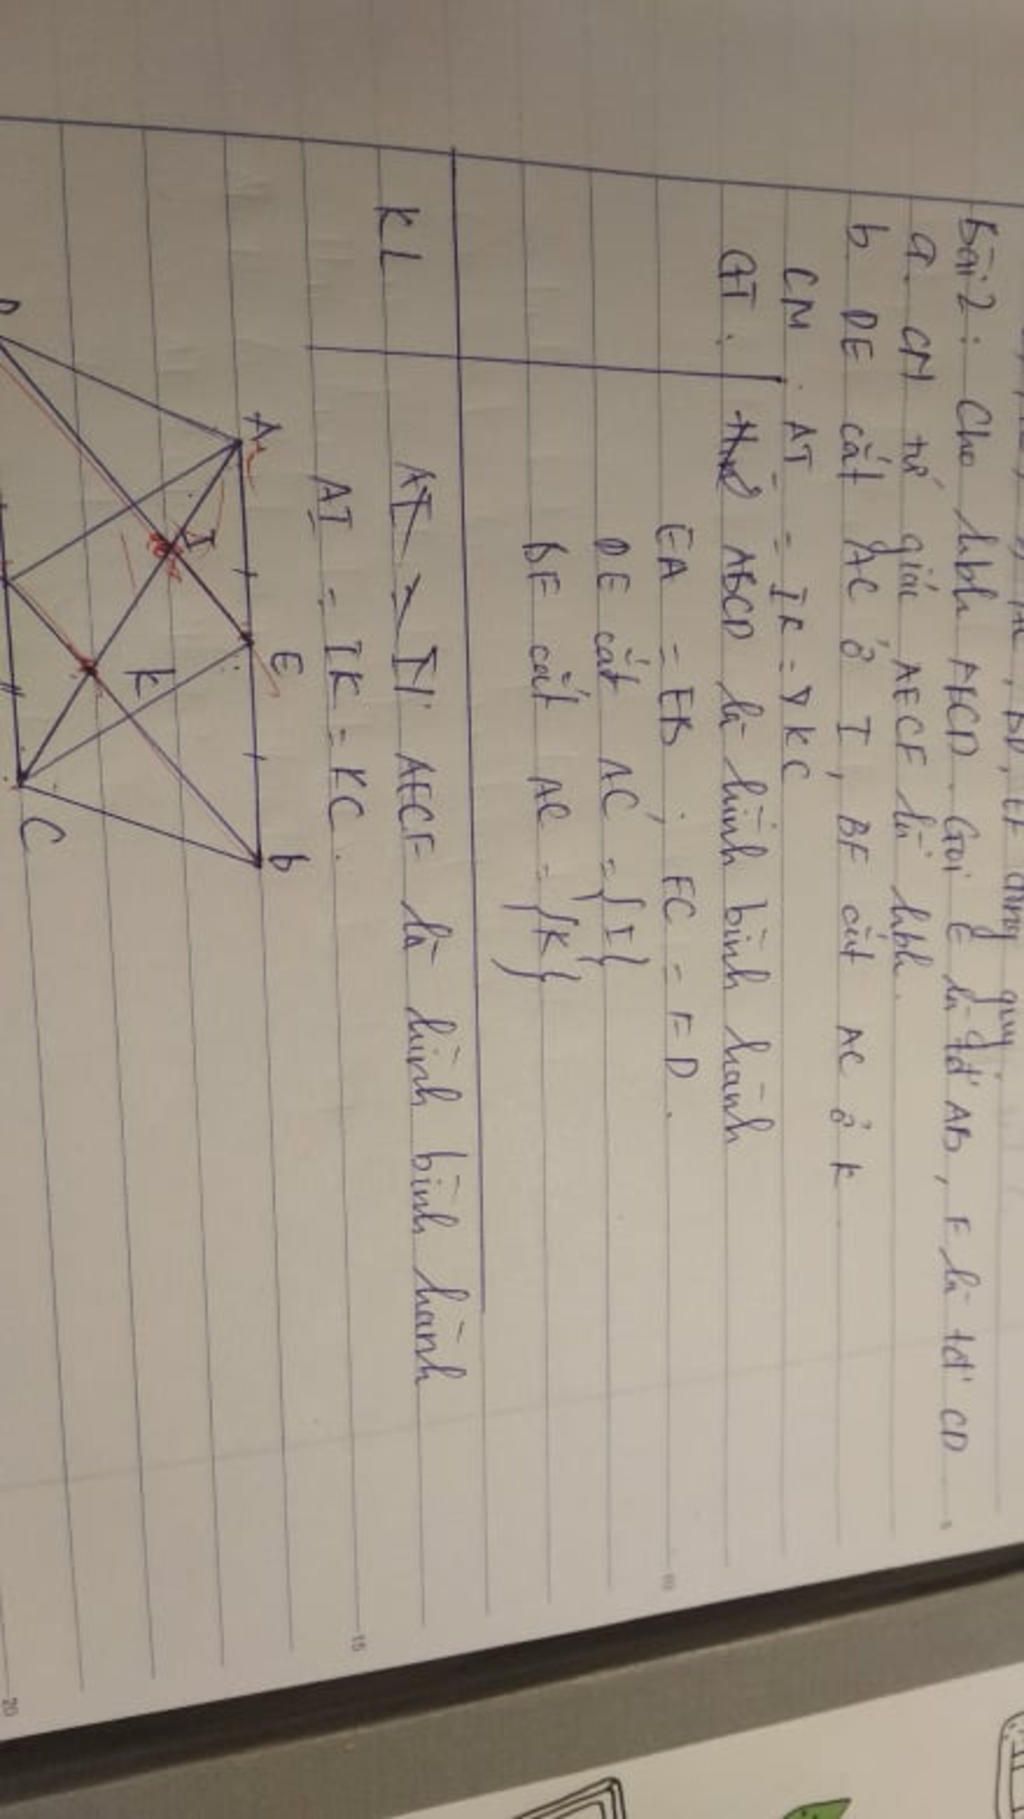 Bài 2: Cho hbh ABCD. Gọi E là tđ AB, F là tđ CD
a. CM tứ giác AECF là hbh.
b DE cắt AC ở I, BF cắt AC ở K
CM. AI = IK = KC
GT. ABCD là hình bình hành
EA = EB, FC = FD.
DE cắt AC = {I}
BF cắt AC = {K}
KL AECF là hình bình hành
AI = IK = KC.
A E B
I
K
D C
10
15
20